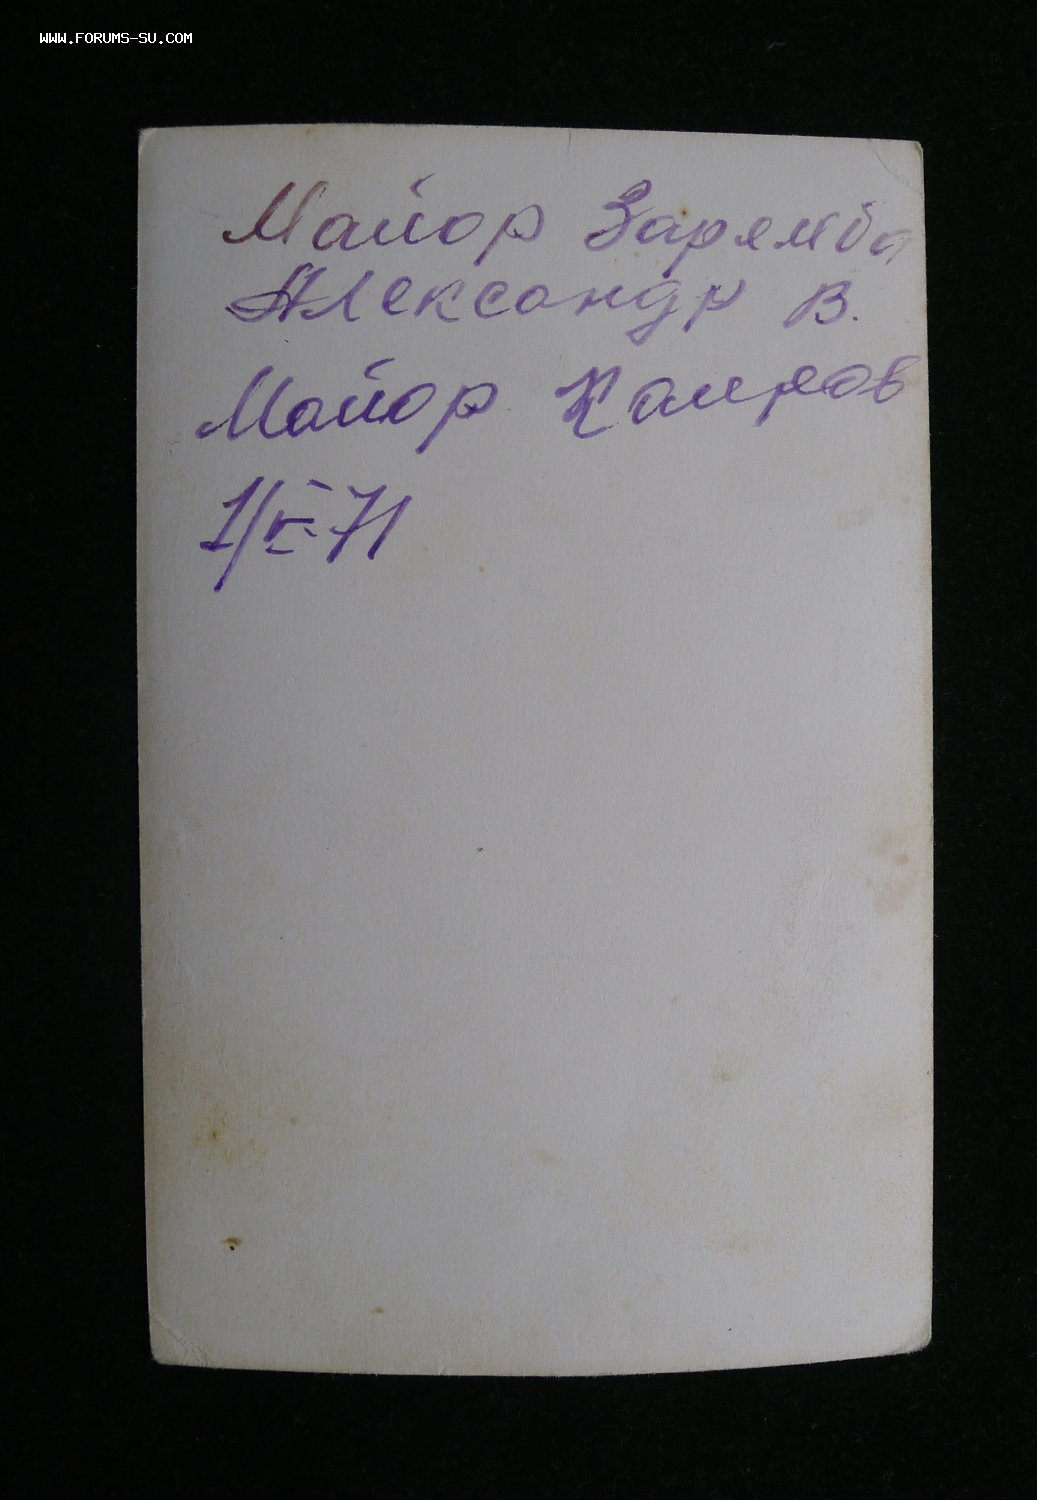 WWW.FORUMS-SU.COM
Майор Зарямба
Александр В.
Майор Каиров